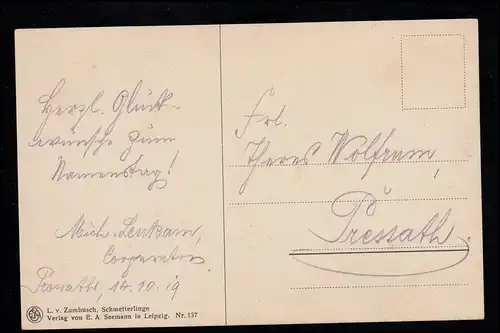 Herzl. Glück-
wünsche zum
Namenstag!
Mich.
Cooperator
Pressath, 14.10.19
Frl.
Theres Wolfram,
Pressath.
L. v. Zumbusch, Schmetterlinge
Verlag von E. A. Seemann in Leipzig. Nr. 137